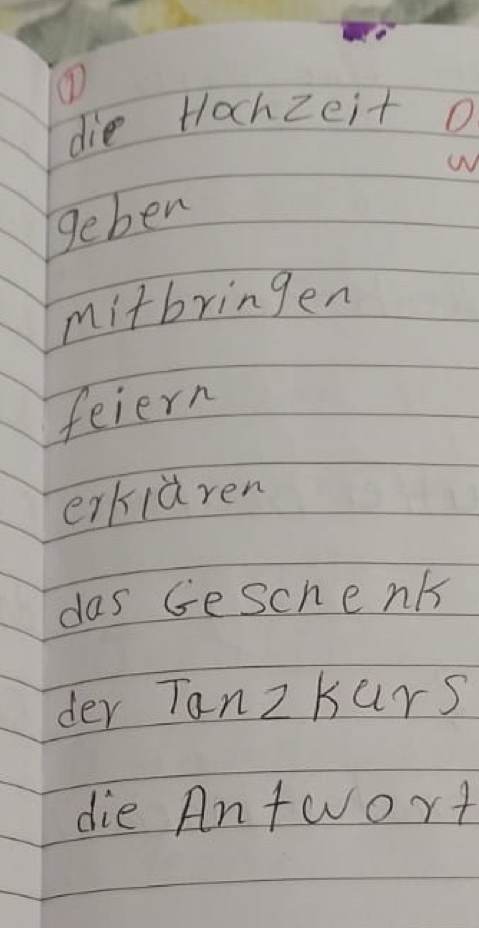 ①
die Hochzeit
geben
mitbringen
feiern
erklären
das Geschenk
der Tanzkurs
die Antwort